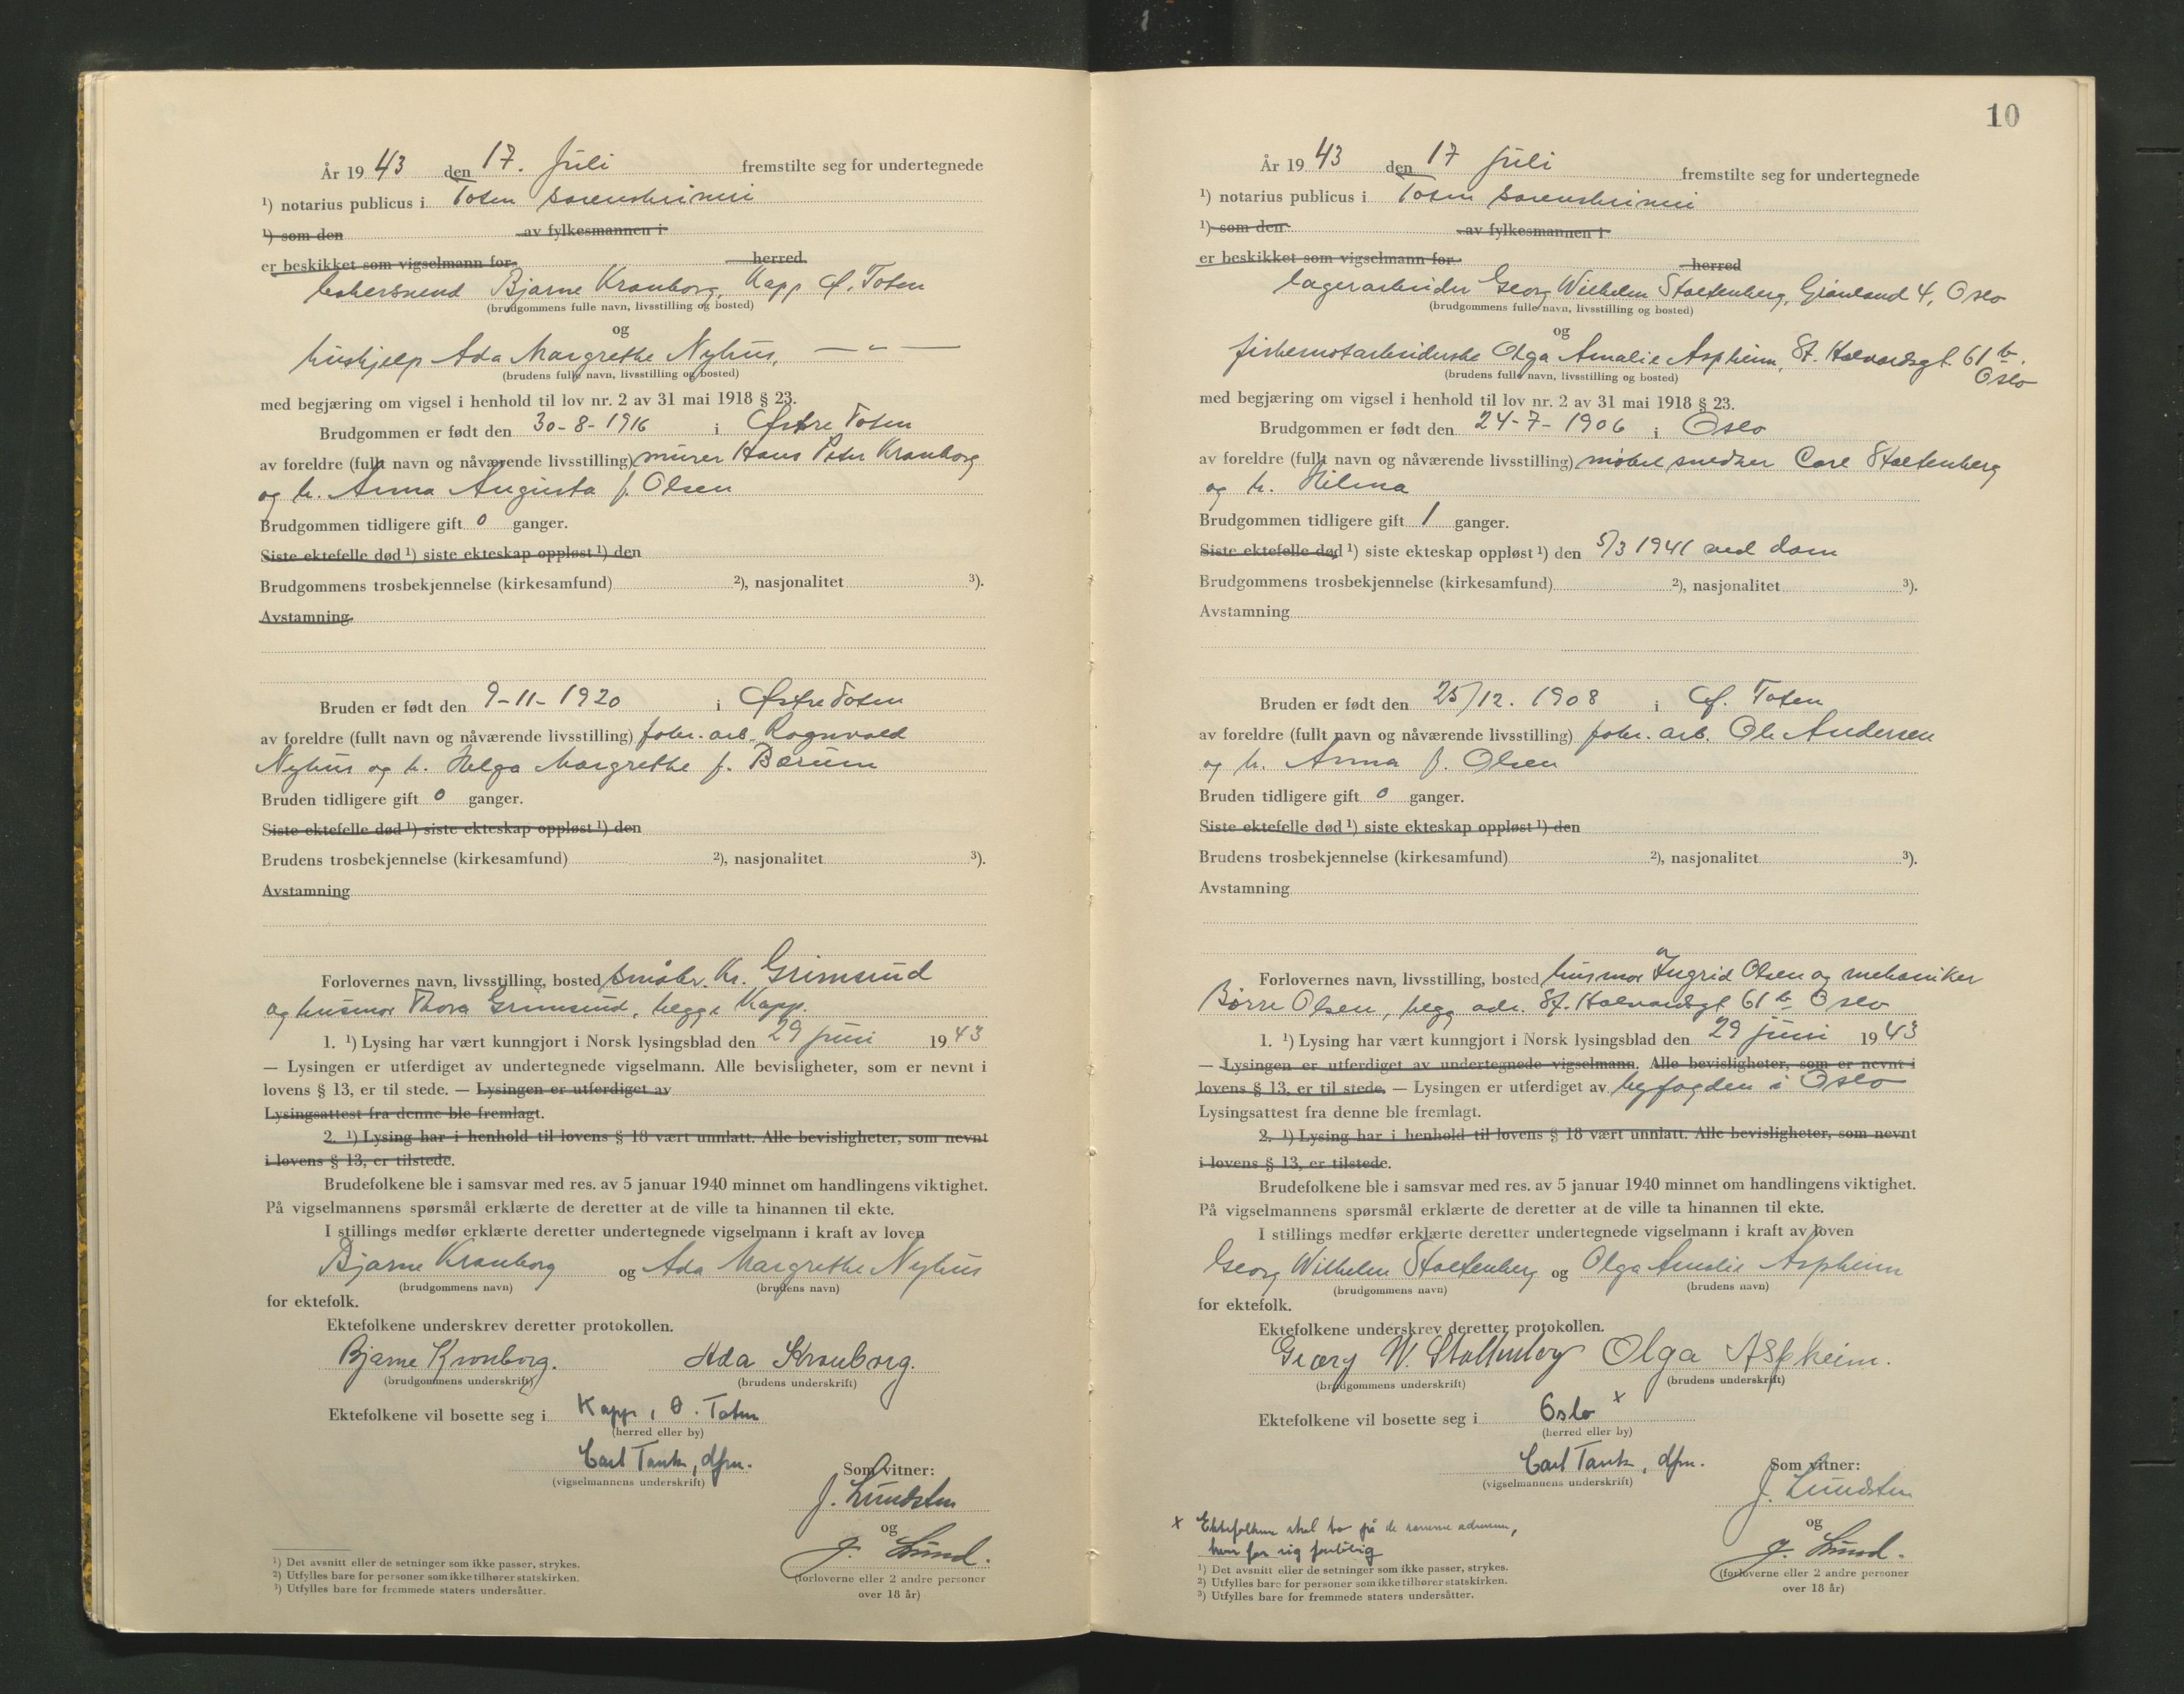 År 19 43 den 17. Juli fremstilte seg for undertegnede
¹) notarius publicus i Toten sorenskriveri
¹) som den av fylkesmannen i
er beskikket som vigselmann for herred.
Bjarne Kronborg, Kapp Ø. Toten
(brudgommens fulle navn, livsstilling og bosted)
og
hushjelp Ada Margrethe Nyhus, — „ —
(brudens fulle navn, livsstilling og bosted)
med begjæring om vigsel i henhold til lov nr. 2 av 31 mai 1918 § 23.
Brudgommen er født den 30-8-1916 i Østre Toten
av foreldre (fullt navn og nåværende livsstilling) murer Hans Peter Kronborg
og h. Anna Augusta f. Olsen
Brudgommen tidligere gift 0 ganger.
Siste ektefelle død ¹) siste ekteskap oppløst ¹) den
Brudgommens trosbekjennelse (kirkesamfund) ²), nasjonalitet ³).
Avstamning
Bruden er født den 9-11-1920 i Østre Toten
av foreldre (fullt navn og nåværende livsstilling) fabr. arb. Ragnvald
Nyhus og h. Helga Margrethe f. Bærum
Bruden tidligere gift 0 ganger.
Siste ektefelle død ¹) siste ekteskap oppløst ¹) den
Brudens trosbekjennelse (kirkesamfund) ²), nasjonalitet ³).
Avstamning
Forlovernes navn, livsstilling, bosted småbr. Kr. Grimsund
og husmor Thora Grimsund, begge Kapp.
1. ¹) Lysing har vært kunngjort i Norsk lysingsblad den 29 juni 19 43
— Lysingen er utferdiget av undertegnede vigselmann. Alle bevisligheter, som er nevnt i
lovens § 13, er til stede. — Lysingen er utferdiget av
Lysingsattest fra denne ble fremlagt.
2. ¹) Lysing har i henhold til lovens § 18 vært unnlatt. Alle bevisligheter, som nevnt
i lovens § 13, er tilstede.
Brudefolkene ble i samsvar med res. av 5 januar 1940 minnet om handlingens viktighet.
På vigselmannens spørsmål erklærte de deretter at de ville ta hinannen til ekte.
I stillings medfør erklærte deretter undertegnede vigselmann i kraft av loven
Bjarne Kronborg og Ada Margrethe Nyhus
(brudgommens navn) (brudens navn)
for ektefolk.
Ektefolkene underskrev deretter protokollen.
Bjarne Kronborg. Ada Kronborg.
(brudgommens underskrift) (brudens underskrift)
Ektefolkene vil bosette seg i Kapp, Ø. Toten
(herred eller by)
Carl Tank, dfm.
(vigselmannens underskrift)
Som vitner:
J. Lundsten
og
J. Lund.
(forloverne eller 2 andre personer
over 18 år)
¹) Det avsnitt eller de setninger som ikke passer, strykes.
²) Utfylles bare for personer som ikke tilhører statskirken.
³) Utfylles bare for fremmede staters undersåtter.
10
År 19 43 den 17 Juli fremstilte seg for undertegnede
¹) notarius publicus i Toten sorenskriveri
¹) som den av fylkesmannen i
er beskikket som vigselmann for herred
lagerarbeider Georg Wilhelm Stoltenberg, Grønland 4, Oslo
(brudgommens fulle navn, livsstilling og bosted)
og
Olga Amalie Aspheim, St. Halvardsgt. 61 b.
Oslo
(brudens fulle navn, livsstilling og bosted)
med begjæring om vigsel i henhold til lov nr. 2 av 31 mai 1918 § 23.
Brudgommen er født den 24-7-1906 i Oslo
av foreldre (fullt navn og nåværende livsstilling) møbelsnedker Carl Stoltenberg
og h. Hilma
Brudgommen tidligere gift 1 ganger.
Siste ektefelle død ¹) siste ekteskap oppløst ¹) den 5/3 1941 ved dom
Brudgommens trosbekjennelse (kirkesamfund) ²), nasjonalitet ³).
Avstamning
Bruden er født den 25/12. 1908 i Ø. Toten
av foreldre (fullt navn og nåværende livsstilling) fabr. arb. Ole Andersen
og h. Anna f. Olsen
Bruden tidligere gift 0 ganger.
Siste ektefelle død ¹) siste ekteskap oppløst ¹) den
Brudens trosbekjennelse (kirkesamfund) ²), nasjonalitet ³).
Avstamning
Forlovernes navn, livsstilling, bosted husmor Ingrid Olsen og mekaniker
Børre Olsen, begg adr. St. Halvardsgt 61 b Oslo
1. ¹) Lysing har vært kunngjort i Norsk lysingsblad den 29 juni 19 43
— Lysingen er utferdiget av undertegnede vigselmann. Alle bevisligheter, som er nevnt i
lovens § 13, er til stede. — Lysingen er utferdiget av byfogden i Oslo
Lysingsattest fra denne ble fremlagt.
2. ¹) Lysing har i henhold til lovens § 18 vært unnlatt. Alle bevisligheter, som nevnt
i lovens § 13, er tilstede.
Brudefolkene ble i samsvar med res. av 5 januar 1940 minnet om handlingens viktighet.
På vigselmannens spørsmål erklærte de deretter at de ville ta hinannen til ekte.
I stillings medfør erklærte deretter undertegnede vigselmann i kraft av loven
Georg Wilhelm Stoltenberg og Olga Amalie Aspheim
(brudgommens navn) (brudens navn)
for ektefolk.
Ektefolkene underskrev deretter protokollen.
Georg W. Stoltenberg Olga Aspheim.
(brudgommens underskrift) (brudens underskrift)
Ektefolkene vil bosette seg i Oslo x
(herred eller by)
Carl Tank, dfm.
(vigselmannens underskrift)
Som vitner:
J. Lundsten
og
J. Lund.
(forloverne eller 2 andre personer
over 18 år)
x Ektefolkene skal bo på de samme adresser,
hver for sig foreløbig
¹) Det avsnitt eller de setninger som ikke passer, strykes.
²) Utfylles bare for personer som ikke tilhører statskirken.
³) Utfylles bare for fremmede staters undersåtter.